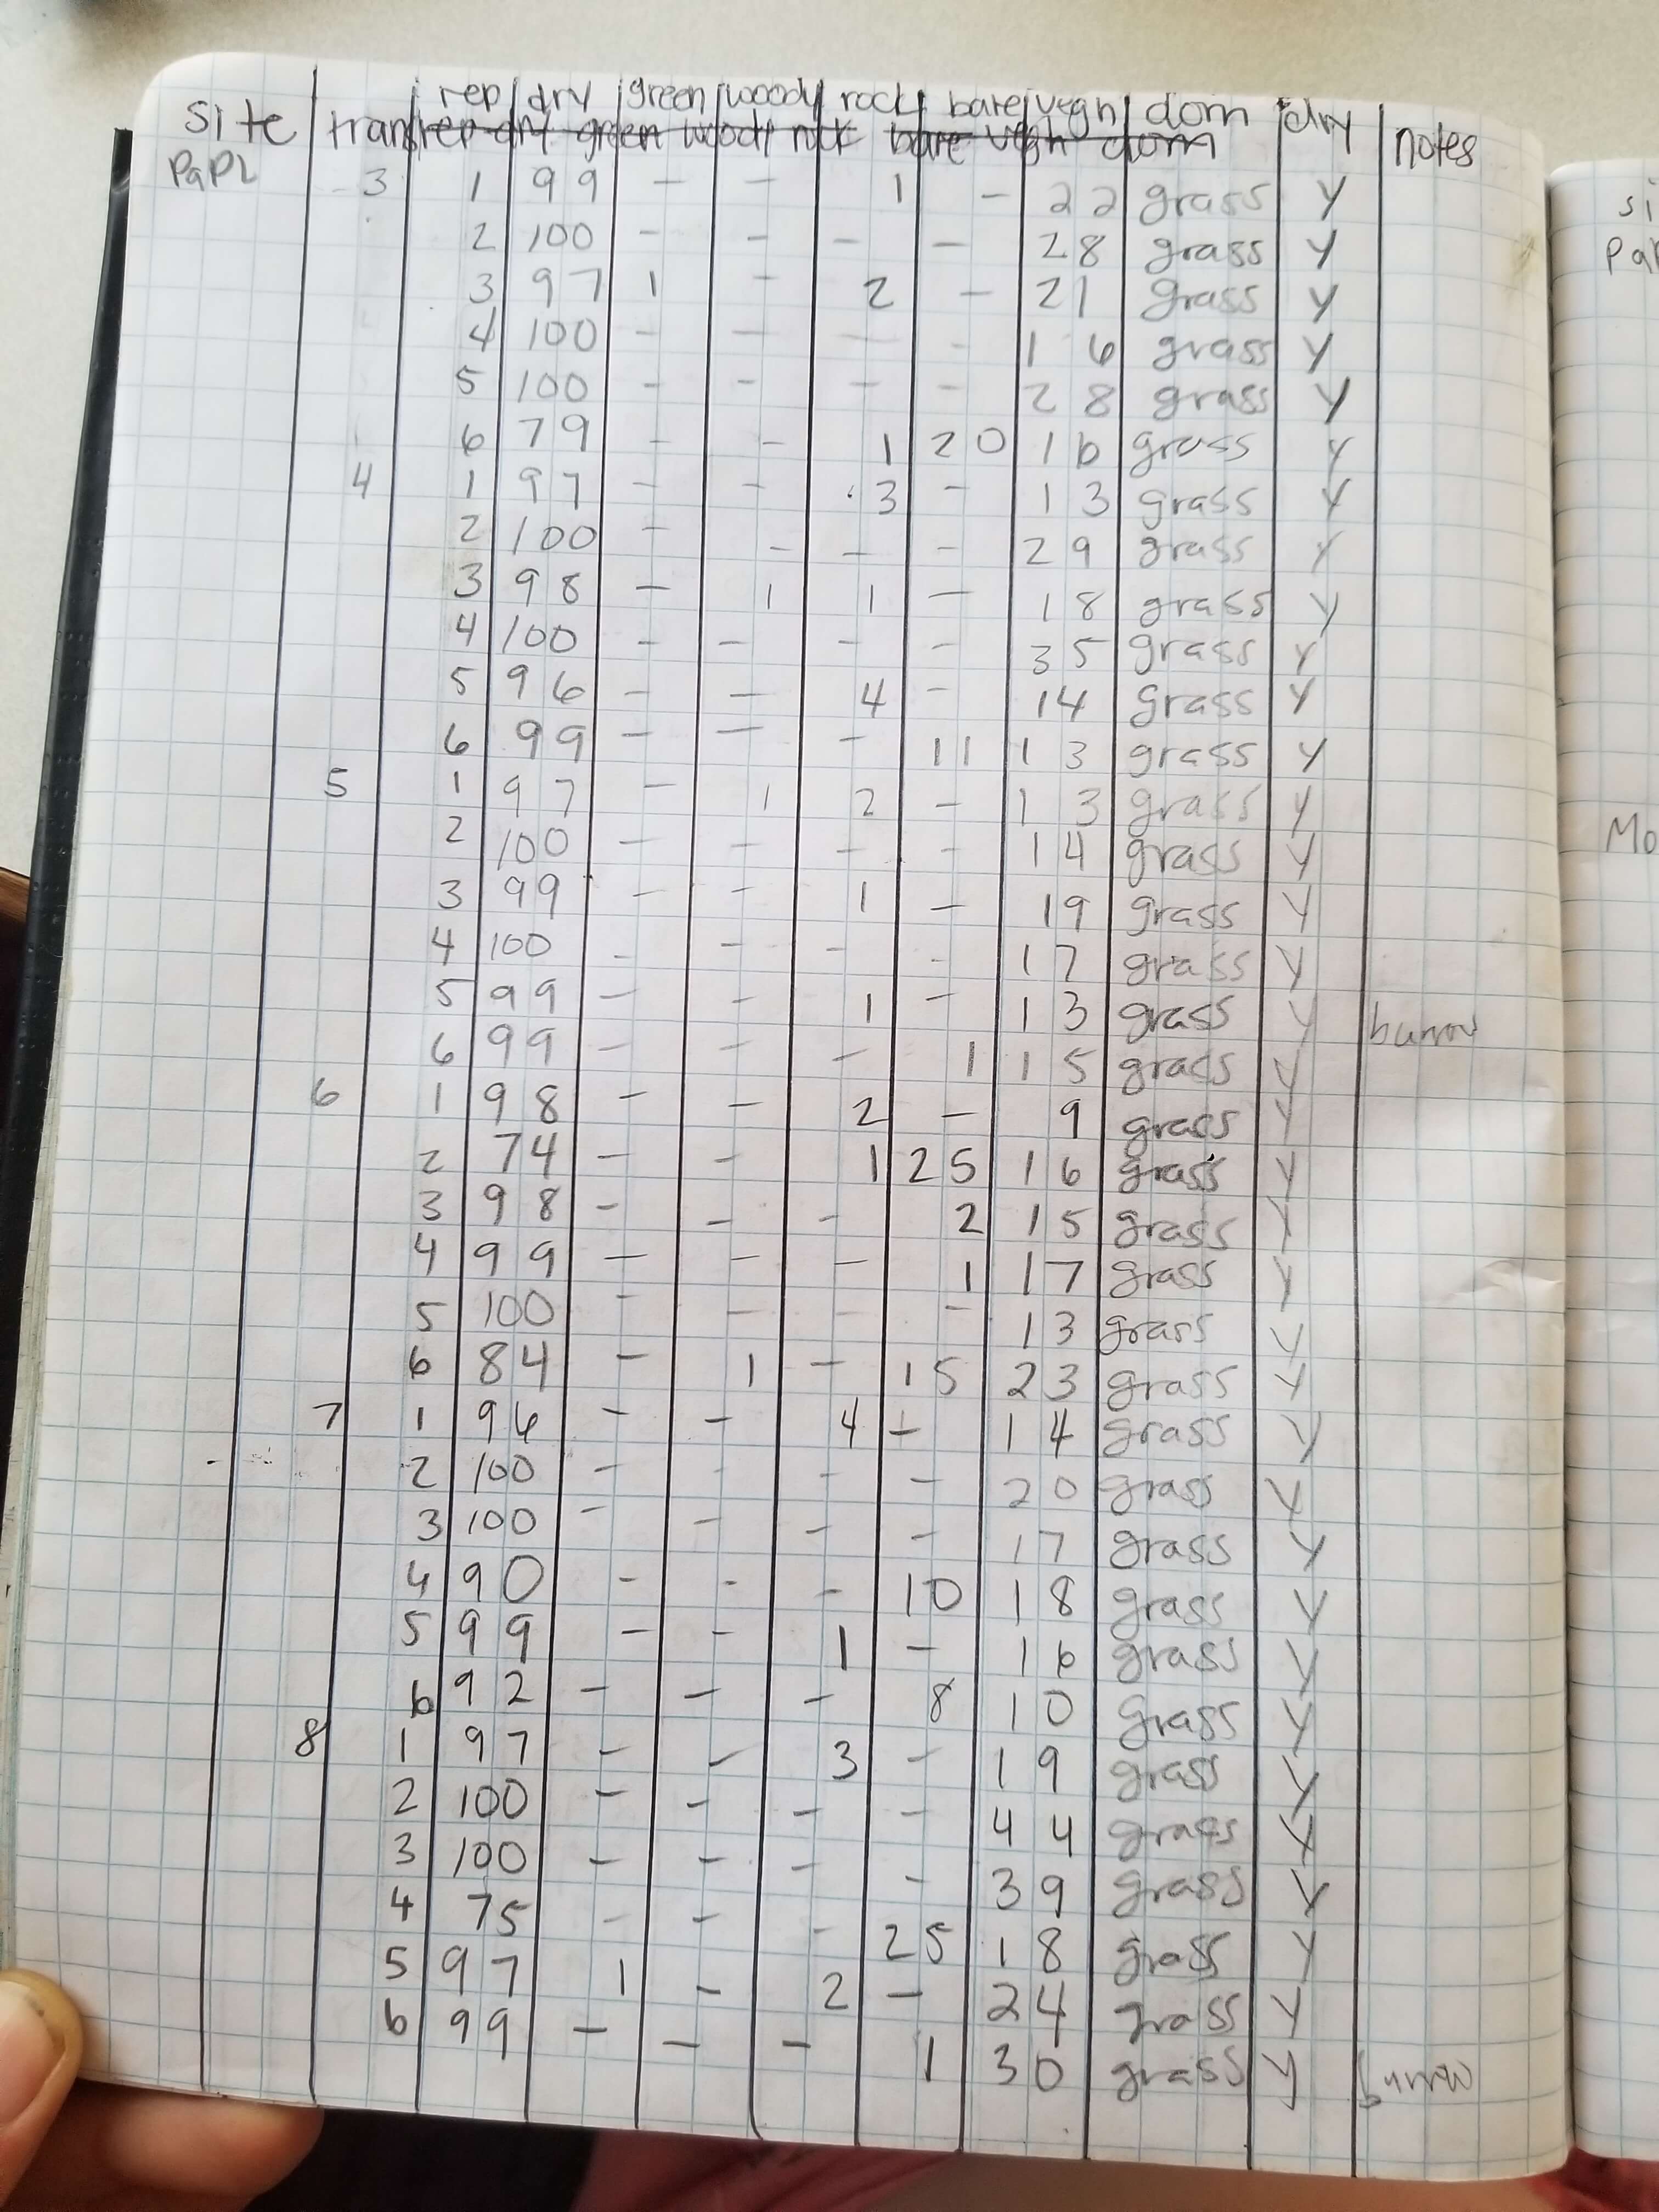 site trans rep dry green woody rock bare vegh dom dry notes
rep dry green woody rock bare vegh dom
PaPL 3 1 99 - - 1 - 22 grass y
2 100 - - - - 28 grass y
3 97 1 - 2 - 21 grass y
4 100 - - - - 16 grass y
5 100 - - - - 28 grass y
6 79 - - 1 20 16 grass y
4 1 97 - - 3 - 13 grass y
2 100 - - - - 29 grass y
3 98 - 1 1 - 18 grass y
4 100 - - - - 35 grass y
5 96 - - 4 - 14 grass y
6 99 - - - 11 13 grass y
5 1 97 - 1 2 - 13 grass y
2 100 - - - - 14 grass y
3 99 - - 1 - 19 grass y
4 100 - - - - 17 grass y
5 99 - - 1 - 13 grass y burrow
6 99 - - - 1 15 grass y
6 1 98 - - 2 - 9 grass y
2 74 - - 1 25 16 grass y
3 98 - - - 2 15 grass y
4 99 - - - 1 17 grass y
5 100 - - - - 13 grass y
6 84 - 1 - 15 23 grass y
7 1 96 - - 4 - 14 grass y
2 100 - - - - 20 grass y
3 100 - - - - 17 grass y
4 90 - - - 10 18 grass y
5 99 - - 1 - 16 grass y
6 92 - - - 8 10 grass y
8 1 97 - - 3 - 19 grass y
2 100 - - - - 44 grass y
3 100 - - - - 39 grass y
4 75 - - - 25 18 grass y
5 97 1 - 2 - 24 grass y
6 99 - - - 1 30 grass y burrow